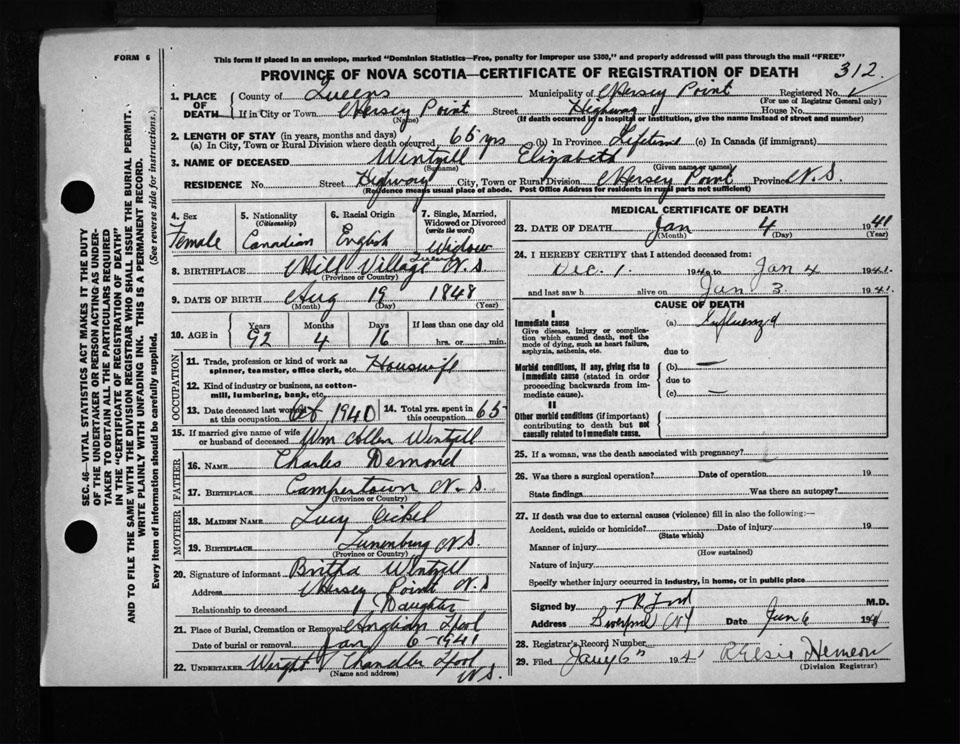 FORM 6
This form if placed in an envelope, marked "Dominion Statistics—Free, penalty for improper use $300," and properly addressed will pass through the mail "FREE"
PROVINCE OF NOVA SCOTIA—CERTIFICATE OF REGISTRATION OF DEATH 312.
1. PLACE OF DEATH County of Queens Municipality of Hersey Point Registered No.
(For use of Registrar General only)
If in City or Town Hersey Point Street Highway House No.
(Name) (If death occurred in a hospital or institution, give the name instead of street and number)
2. LENGTH OF STAY (in years, months and days)
(a) In City, Town or Rural Division where death occurred 65 yrs (b) In Province Lifetime (c) In Canada (if immigrant)
3. NAME OF DECEASED Wentzell Elizabeth
(Surname) (Given name or names)
RESIDENCE No. Street Highway City, Town or Rural Division Hersey Point Province N.S.
(Residence means usual place of abode. Post Office Address for residents in rural parts not sufficient)
4. Sex Female
5. Nationality (Citizenship) Canadian
6. Racial Origin English
7. Single, Married, Widowed or Divorced (write the word) Widow
8. BIRTHPLACE Mill Village Queens N.S.
(Province or Country)
9. DATE OF BIRTH Aug 19 1848
(Month) (Day) (Year)
10. AGE in Years 92 Months 4 Days 16 If less than one day old hrs. or min.
OCCUPATION
11. Trade, profession or kind of work as spinner, teamster, office clerk, etc. Housewife
12. Kind of industry or business, as cotton-mill, lumbering, bank, etc.
13. Date deceased last worked at this occupation Oct 1940 14. Total yrs. spent in this occupation 65
15. If married give name of wife or husband of deceased Wm Wentzell
FATHER
16. NAME Charles Demond
17. BIRTHPLACE Campertown N.S.
(Province or Country)
MOTHER
18. MAIDEN NAME Lucy
19. BIRTHPLACE Lunenburg N.S.
(Province or Country)
20. Signature of informant Wentzell
Address Hersey Point N.S
Relationship to deceased Daughter
21. Place of Burial, Cremation or Removal Anglican Lpool
Date of burial or removal Jan 6-1941
22. UNDERTAKER Wright Chandler Lpool N.S.
(Name and address)
MEDICAL CERTIFICATE OF DEATH
23. DATE OF DEATH Jan 4 1941
(Month) (Day) (Year)
24. I HEREBY CERTIFY that I attended deceased from:
Dec. 1. 1940 to Jan 4 1941.
and last saw h alive on Jan 3 1941
CAUSE OF DEATH
I
Immediate cause (a) Influenza
Give disease, injury or complication which caused death, not the mode of dying, such as heart failure, asphyxia, asthenia, etc.
due to
Morbid conditions, if any, giving rise to immediate cause (stated in order proceeding backwards from immediate cause). (b) —
due to
(c) —
II
Other morbid conditions (if important) contributing to death but not causally related to immediate cause.
25. If a woman, was the death associated with pregnancy?
26. Was there a surgical operation? Date of operation 19
State findings Was there an autopsy?
27. If death was due to external causes (violence) fill in also the following:—
Accident, suicide or homicide? Date of injury 19
(State which)
Manner of injury
(How sustained)
Nature of injury
Specify whether injury occurred in industry, in home, or in public place
Signed by Ford M.D.
Address Liverpool Date Jan 6 1941
28. Registrar's Record Number
29. Filed Jany 6" 1941 Elsie Hemeon
(Division Registrar)
SEC. 46—VITAL STATISTICS ACT MAKES IT THE DUTY
OF THE UNDERTAKER OR PERSON ACTING AS UNDER-
TAKER TO OBTAIN ALL THE PARTICULARS REQUIRED
IN THE "CERTIFICATE OF REGISTRATION OF DEATH"
AND TO FILE THE SAME WITH THE DIVISION REGISTRAR WHO SHALL ISSUE THE BURIAL PERMIT.
WRITE PLAINLY WITH UNFADING INK. THIS IS A PERMANENT RECORD.
Every item of information should be carefully supplied. (See reverse side for instructions.)